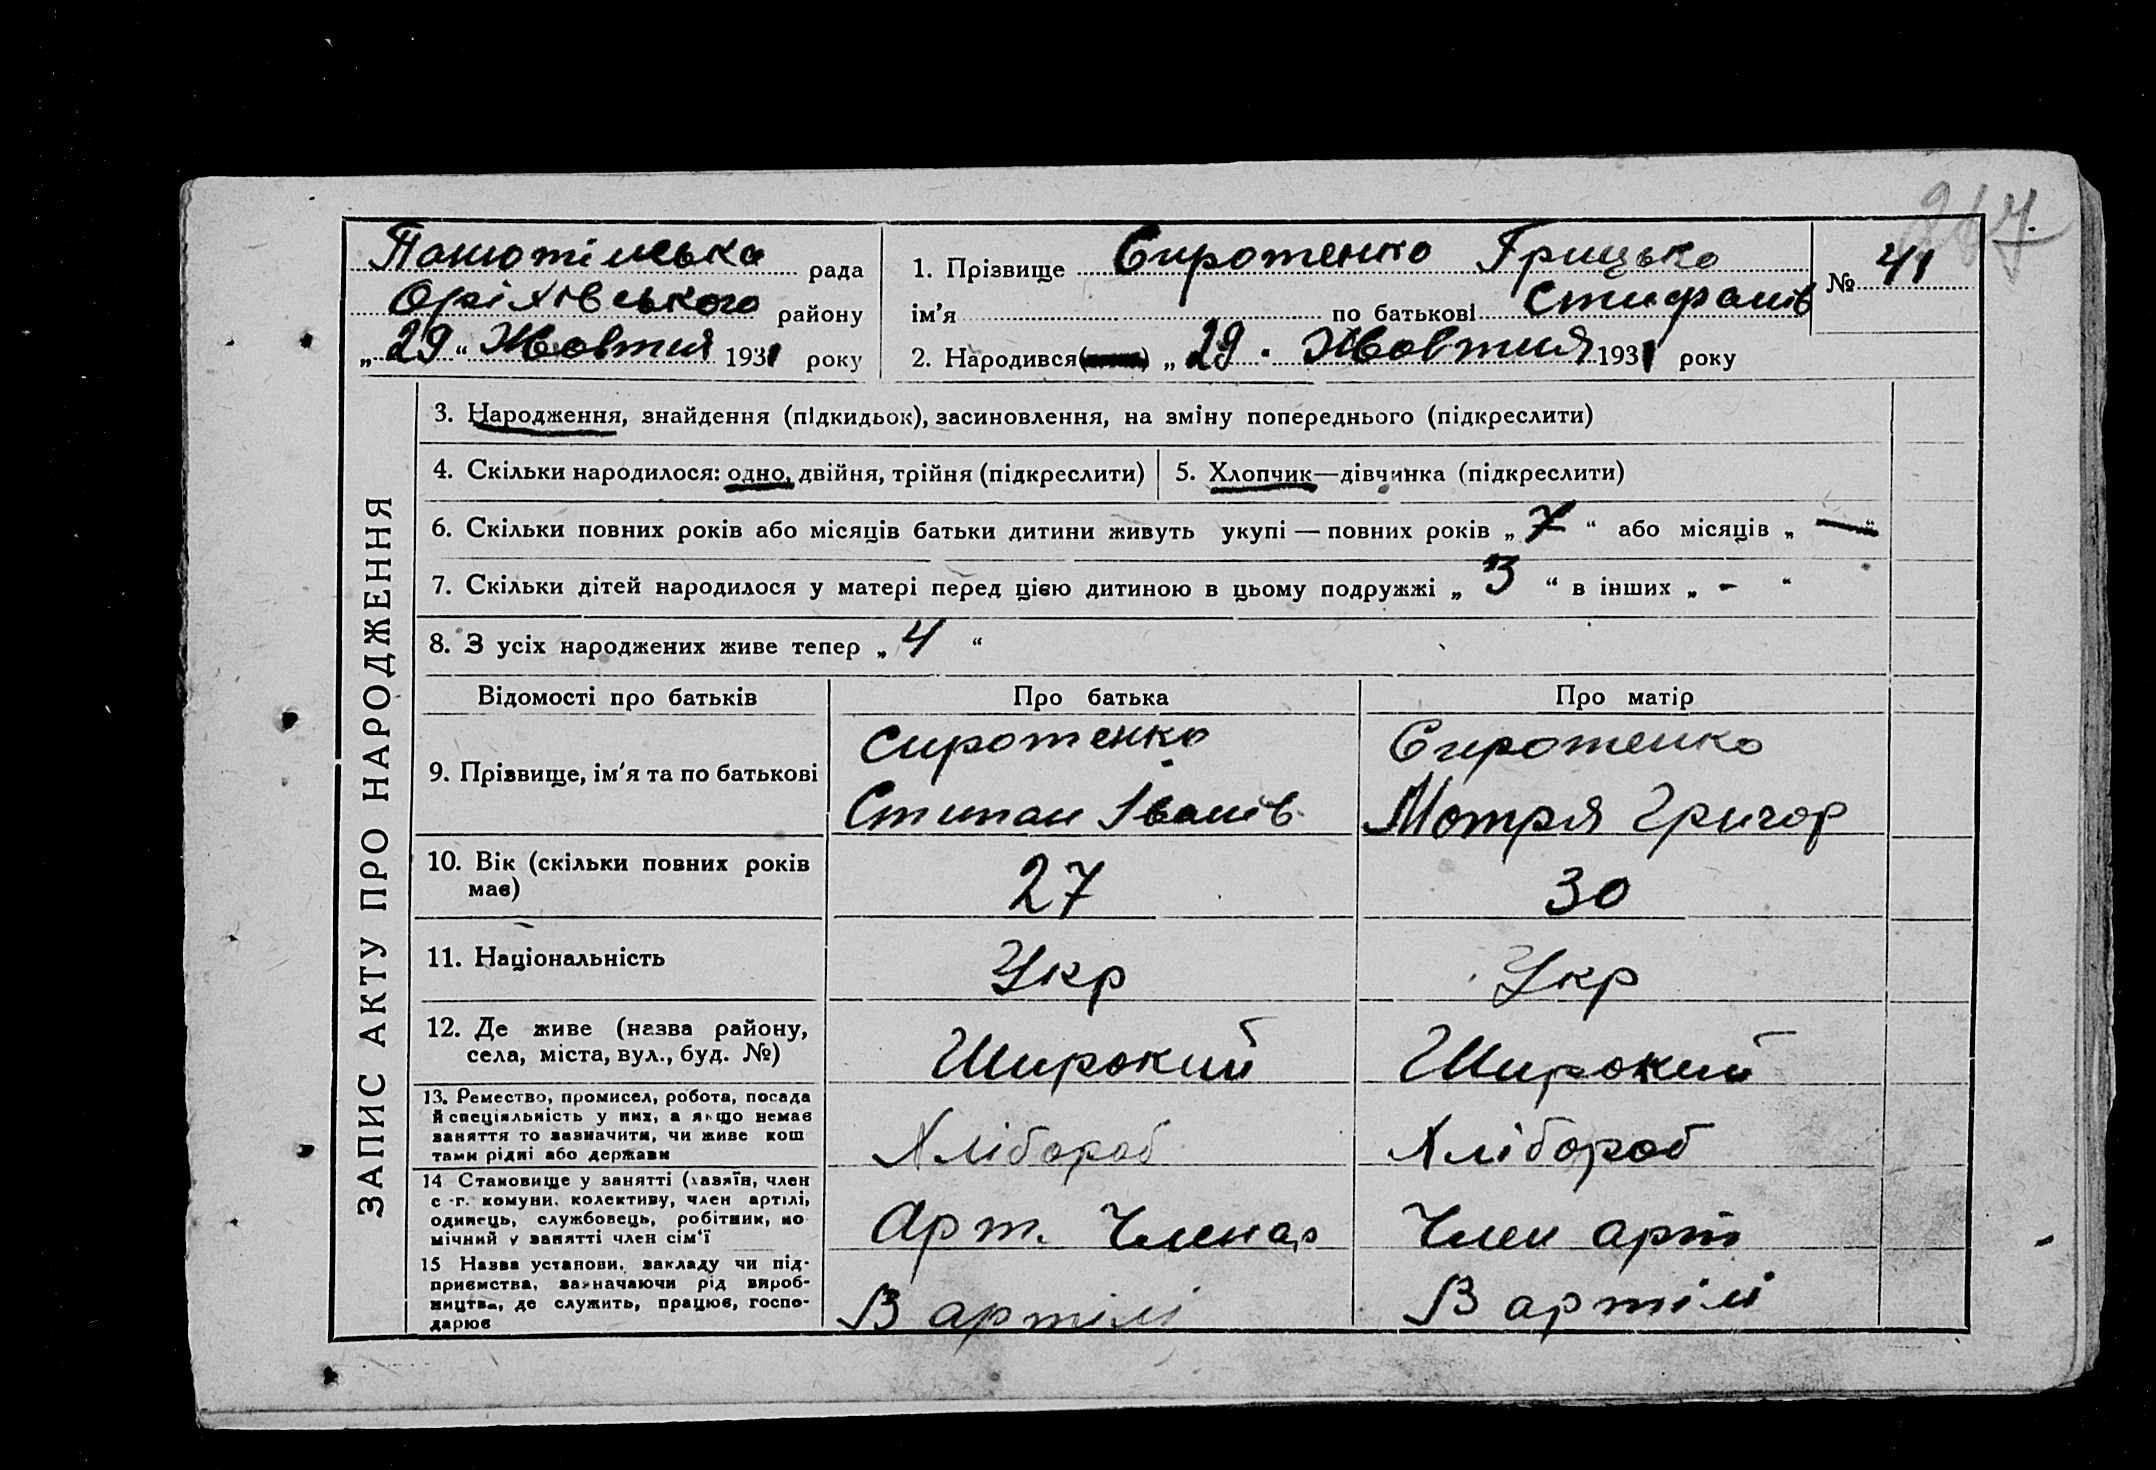 267.
Панютінська рада
Оріхівського району
„29“ Жовтня 1931 року
1. Прізвище Сиротенко Грицько
ім’я по батькові Стифанів
№ 41
2. Народився „29. Жовтня 1931 року
ЗАПИС АКТУ ПРО НАРОДЖЕННЯ
3. Народження, знайдення (підкидьок), засиновлення, на зміну попереднього (підкреслити)
4. Скільки народилося: одно, двійня, трійня (підкреслити)
5. Хлопчик—дівчинка (підкреслити)
6. Скільки повних років або місяців батьки дитини живуть укупі — повних років „7“ або місяців „—“
7. Скільки дітей народилося у матері перед цією дитиною в цьому подружжі „3“ в інших „-“
8. З усіх народжених живе тепер „4“
Відомості про батьків
Про батька
Про матір
9. Прізвище, ім’я та по батькові
Сиротенко
Стипан Іванів
Сиротенко
Мотря Григор
10. Вік (скільки повних років
має)
27
30
11. Національність
Укр
Укр
12. Де живе (назва району,
села, міста, вул., буд. №)
Широкий
Широкий
13. Ремество, промисел, робота, посада
й спеціяльність у них, а якщо немає
заняття то зазначити, чи живе кош
тами рідні або держави
Хлібороб
Хлібороб
14 Становище у занятті (хазяїн, член
с.-г. комуни, колективу, член артілі,
одинець, службовець, робітник, по
мічний у занятті член сім’ї
Арт. Член ар
Член арт
15 Назва установи, закладу чи під-
приємства, зазначаючи рід вироб-
ництва, де служить, працює, госпо-
дарює
В артілі
В артілі